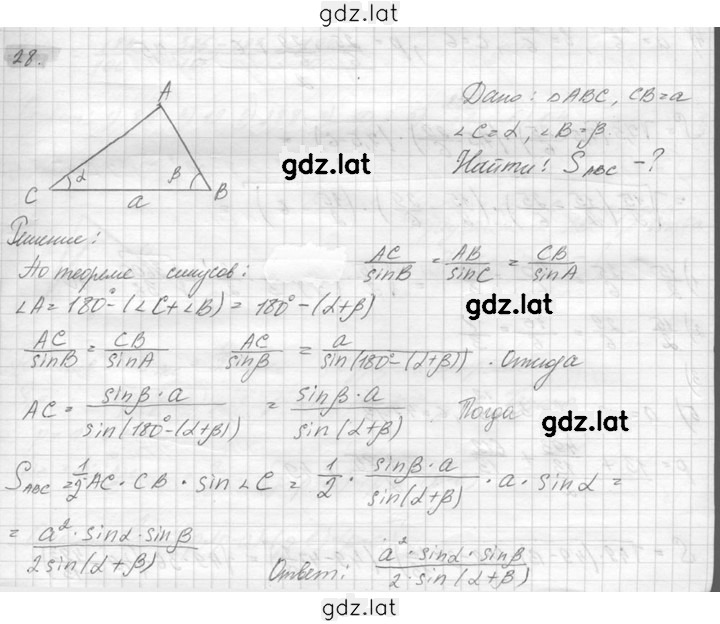 gdz.lat
28.
A
Дано: △ABC, CB=a
∠C=α, ∠B=β.
gdz.lat
Найти: S_ABC -?
C α β B
a
Решение:
По теореме синусов: AC/sinB = AB/sinC = CB/sinA
∠A = 180° - (∠C+∠B) = 180° - (α+β)
AC/sinB = CB/sinA AC/sinβ = a/sin(180° - (α+β)) . Откуда
AC = sinβ·a/sin(180° - (α+β)) = sinβ·a/sin(α+β) . Тогда
gdz.lat
S_ABC = 1/2 AC · CB · sin∠C = 1/2 · sinβ·a/sin(α+β) · a · sinα =
= a²·sinα·sinβ/2sin(α+β) Ответ: a²·sinα·sinβ/2·sin(α+β)
gdz.lat